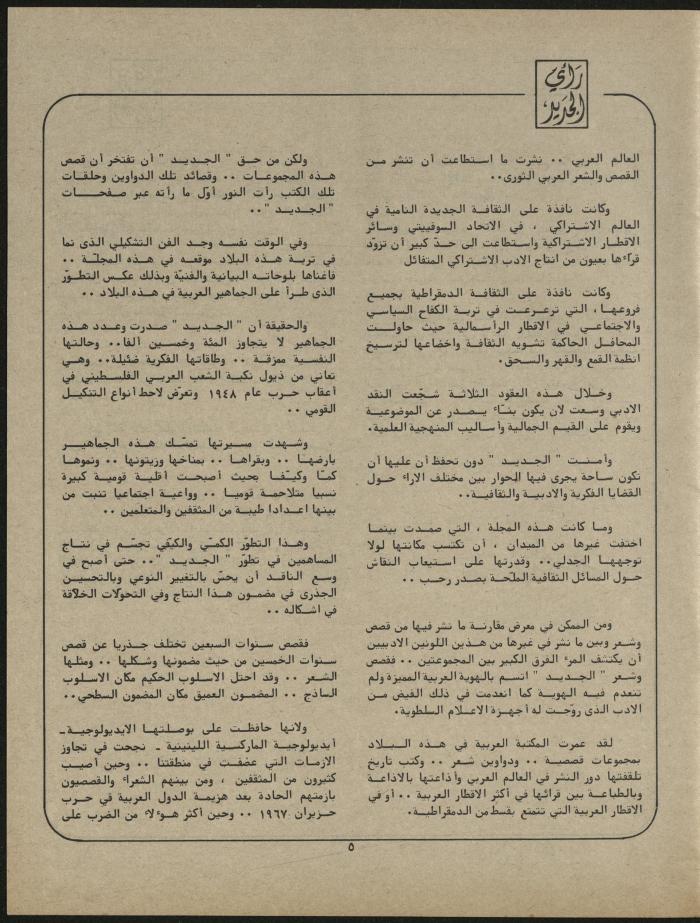 رأي
الجديد
العالم العربي .. نشرت ما استطاعت أن تنشر من
القصص والشعر العربي الثوري..
وكانت نافذة على الثقافة الجديدة النامية في
العالم الاشتراكي ، في الاتحاد السوفييتي وسائر
الاقطار الاشتراكية واستطاعت الى حدّ كبير أن تزوّد
قرّاءها بعيون من انتاج الادب الاشتراكي المتفائل
وكانت نافذة على الثقافة الدمقراطية بجميع
فروعها، التي ترعرعت في تربة الكفاح السياسي
والاجتماعي في الاقطار الرأسمالية حيث حاولت
المحافل الحاكمة تشويه الثقافة واخضاعها لترسيخ
انظمة القمع والقهر والسحق.
وخلال هذه العقود الثلاثة شجّعت النقد
الادبي وسعت لان يكون بنّاء يصدر عن الموضوعية
ويقوم على القيم الجمالية وأساليب المنهجية العلمية.
وأمنت " الجديد " دون تحفظ أن عليها أن
تكون ساحة يجري فيها الحوار بين مختلف الاراء حول
القضايا الفكرية والادبية والثقافية..
وما كانت هذه المجلة ، التي صمدت بينما
اختفت غيرها من الميدان ، أن تكتسب مكانتها لولا
توجهها الجدلي.. وقدرتها على استيعاب النقاش
حول المسائل الثقافية الملحّة بصدر رحب ..
ومن الممكن في معرض مقارنة ما نشر فيها من قصص
وشعر وبين ما نشر في غيرها من هذين اللونين الادبيين
أن يكتشف المرء الفرق الكبير بين المجموعتين .. فقصص
وشعر " الجديد " اتسم بالهوية العربية المميزة ولم
تنعدم فيه الهوية كما انعدمت في ذلك الفيض من
الادب الذي روّجت له أجهزة الاعلام السلطوية.
لقد عمرت المكتبة العربية في هذه البلاد
بمجموعات قصصية .. ودواوين شعر .. وكتب تاريخ
تلقفتها دور النشر في العالم العربي وأذاعتها بالاذاعة
وبالطباعة بين قرائها في أكثر الاقطار العربية .. أو في
الاقطار العربية التي تتمتع بقسط من الدمقراطية.
ولكن من حق " الجديد " أن تفتخر أن قصص
هذه المجموعات .. وقصائد تلك الدواوين وحلقات
تلك الكتب رأت النور أوّل ما رأته عبر صفحات
" الجديد "..
وفي الوقت نفسه وجد الفن التشكيلي الذي نما
في تربة هذه البلاد موقعه في هذه المجلّة ..
فاغناها بلوحاته البيانية والفنيّة وبذلك عكس التطوّر
الذي طرأ على الجماهير العربية في هذه البلاد ..
والحقيقة أن " الجديد " صدرت وعدد هذه
الجماهير لا يتجاوز المئة وخمسين ألفا.. وحالتها
النفسية ممزقة .. وطاقاتها الفكرية ضئيلة.. وهي
تعاني من ذيول نكبة الشعب العربي الفلسطيني في
أعقاب حرب عام ١٩٤٨ وتعرّض لاحط أنواع التنكيل
القومي ..
وشهدت مسيرتها تمسّك هذه الجماهير
بارضها .. وبقراها .. بمناخها وزيتونها .. ونموها
كمّا وكيفّا بحيث أصبحت أقلية قومية كبيرة
نسبيا متلاحمة قوميا .. وواعية اجتماعيا تنبت من
بينها اعدادا طيبة من المثقفين والمتعلمين ..
وهذا التطوّر الكمّي والكيفي تجسّم في نتاج
المساهمين في تطوّر " الجديد ".. حتى أصبح في
وسع الناقد أن يحسّ بالتغيير النوعي وبالتحسين
الجذري في مضمون هذا النتاج وفي التحولات الخلاّقة
في اشكاله ..
فقصص سنوات السبعين تختلف جذريا عن قصص
سنوات الخمسين من حيث مضمونها وشكلها .. ومثلها
الشعر .. وقد احتل الاسلوب الحكيم مكان الاسلوب
الساذج .. المضمون العميق مكان المضمون السطحي..
ولانها حافظت على بوصلتها الايديولوجية-
أيديولوجية الماركسية اللينينية - نجحت في تجاوز
الازمات التي عصفت في منطقتنا .. وحين أصيب
كثيرون من المثقفين ، ومن بينهم الشعراء والقصصيون
بازمتهم الحادة بعد هزيمة الدول العربية في حرب
حزيران ١٩٦٧ .. وحين أكثر هؤلاء من الضرب على
٥